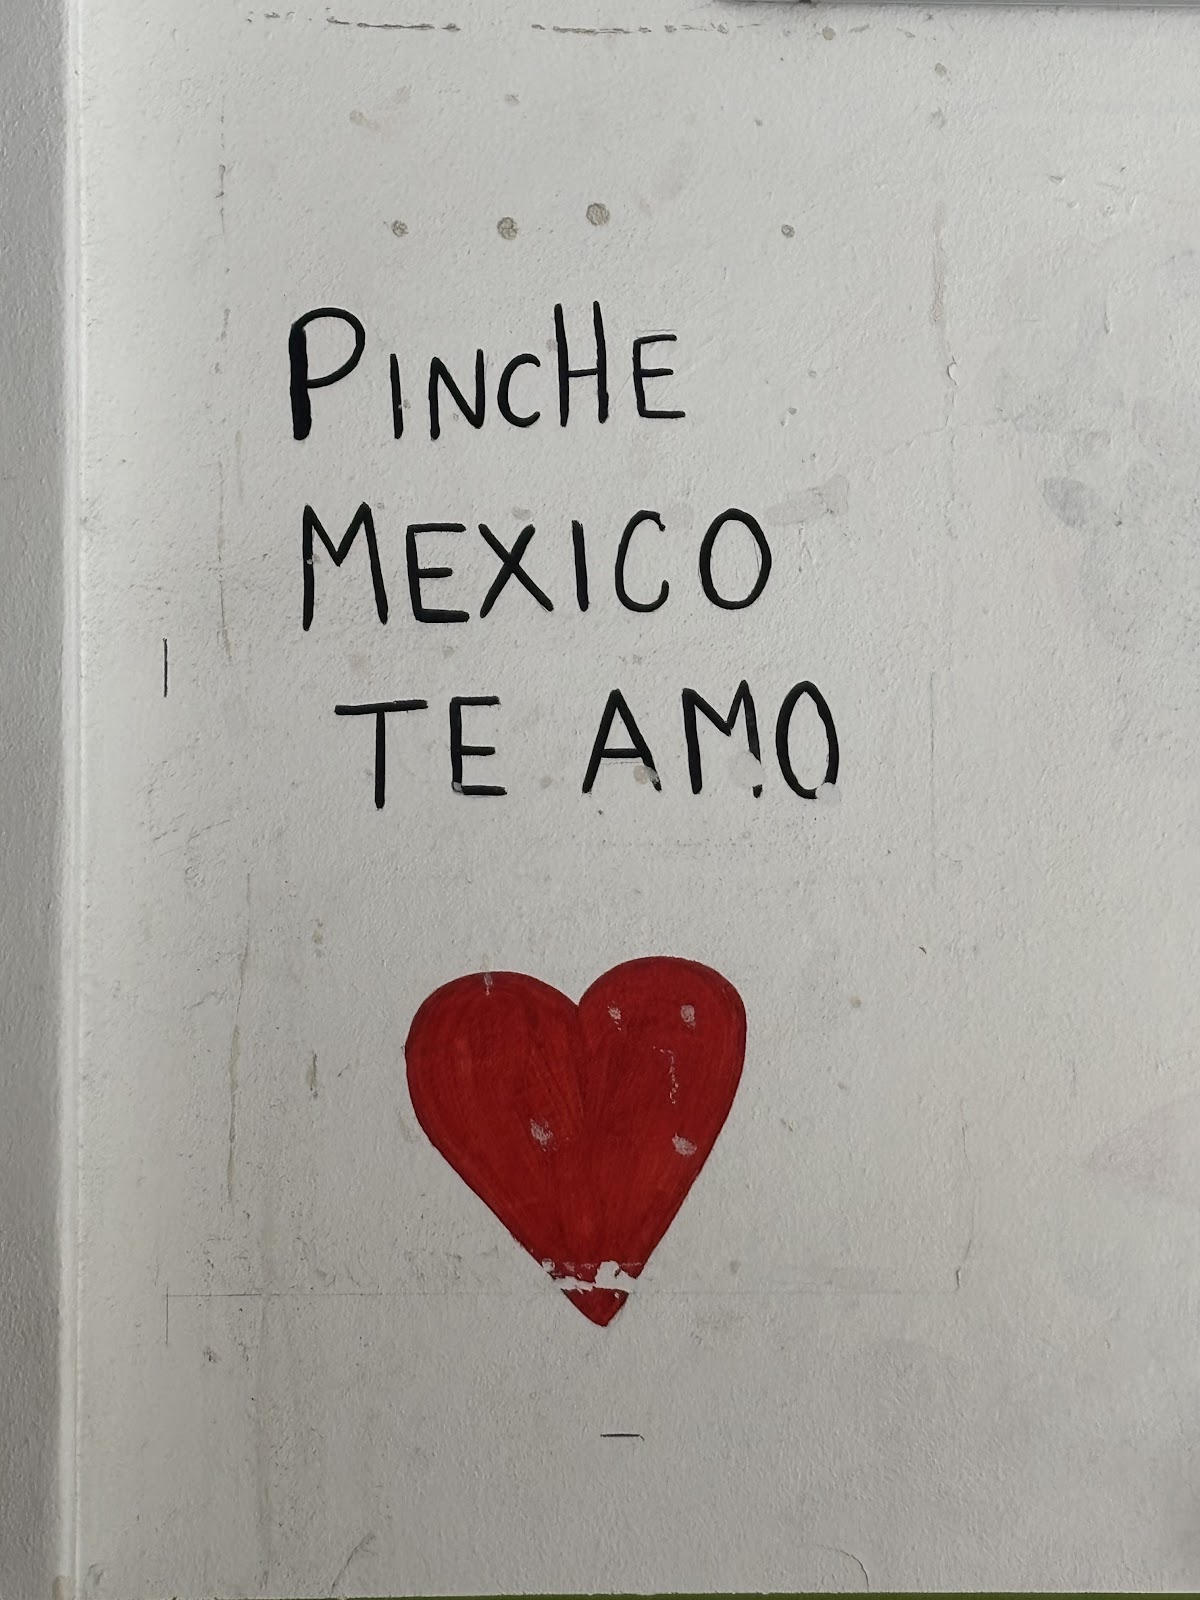 PINCHE
MEXICO
TE AMO